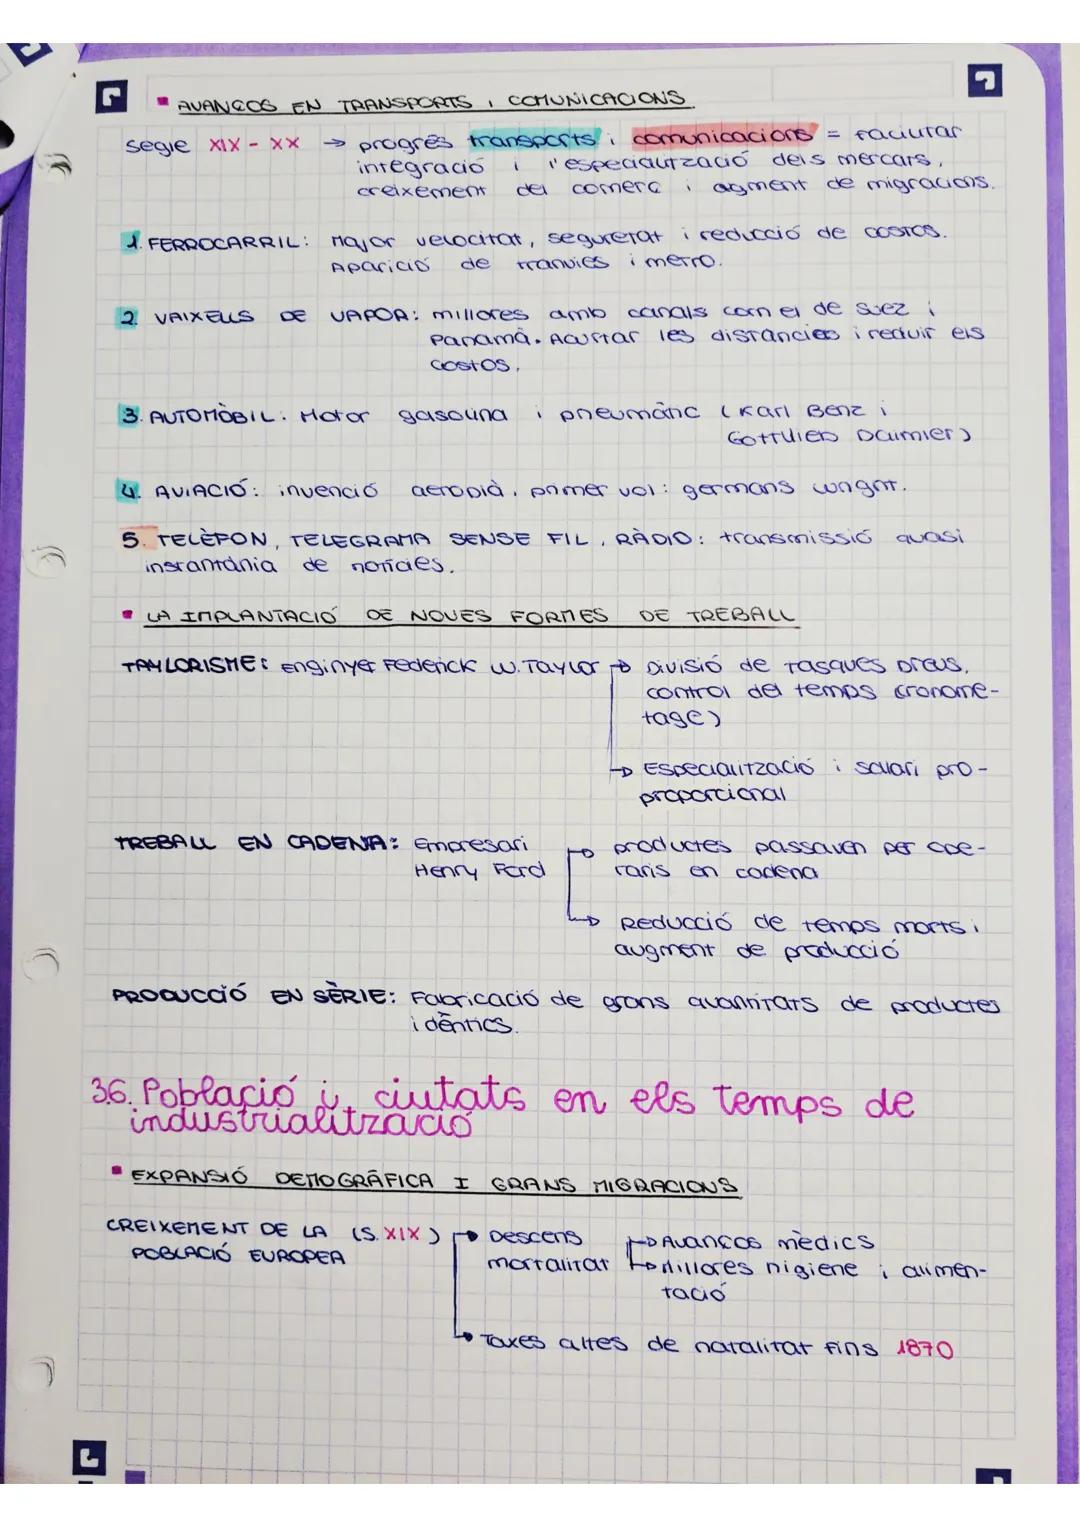 AVANÇOS EN TRANSPORTS I COMUNICACIONS
segle XIX - XX → progrés transports i comunicacions = facilitar
integració i l'especialització dels mercats,
creixement del comerç i agment de migracions.
1. FERROCARRIL: Major velocitat, seguretat i reducció de costos.
Aparició de tranvies i metro.
2. VAIXELLS DE VAPOR: millores amb canals com el de Suez i
Panamà. Acurtar les distàncies i reduir els
costos.
3. AUTOMÒBIL: Motor gasolina i pneumàtic (Karl Benz i
Gottlieb Daimler)
4. AVIACIÓ: invenció aeroplà, primer vol: germans wright.
5. TELÈFON, TELEGRAMA SENSE FIL, RÀDIO: transmissió quasi
instantània de notícies.
LA IMPLANTACIÓ DE NOVES FORMES DE TREBALL
TAYLORISME: Enginyer Federick W. Taylor → Divisió de tasques breus,
control del temps (cronome-
tage)
→ Especialització i salari pro-
proporcional
TREBALL EN CADENA: Empresari → productes passaven per ope-
Henry Ford raris en cadena
→ Reducció de temps morts i
augment de producció
PRODUCCIÓ EN SÈRIE: Fabricació de grans quantitats de productes
idèntics.
3.6. Població i ciutats en els temps de
industrialització
EXPANSIÓ DEMOGRÀFICA I GRANS MIGRACIONS
CREIXEMENT DE LA (S. XIX) → Descens → Avanços mèdics
POBLACIÓ EUROPEA mortalitat → Millores higiene i alimen-
tació
→ Taxes altes de natalitat fins 1870